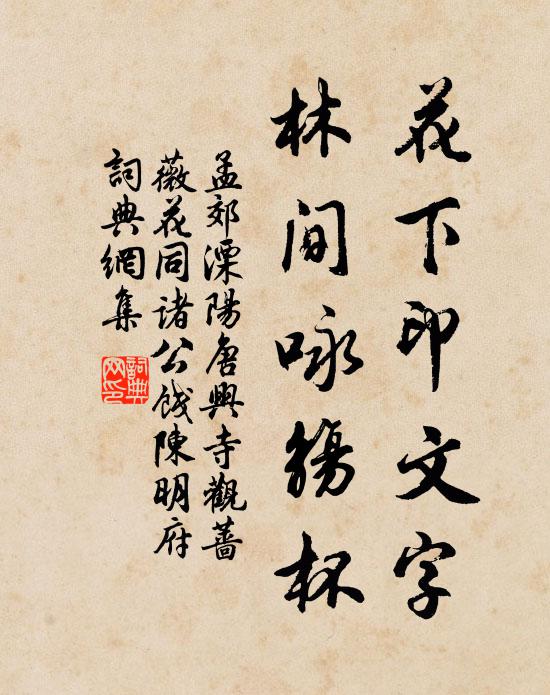 花下印文字
林間咏觴杯
孟郊溧陽唐興寺觀薔
薇花同諸公餞陳明府
詞典網集
詞典网印